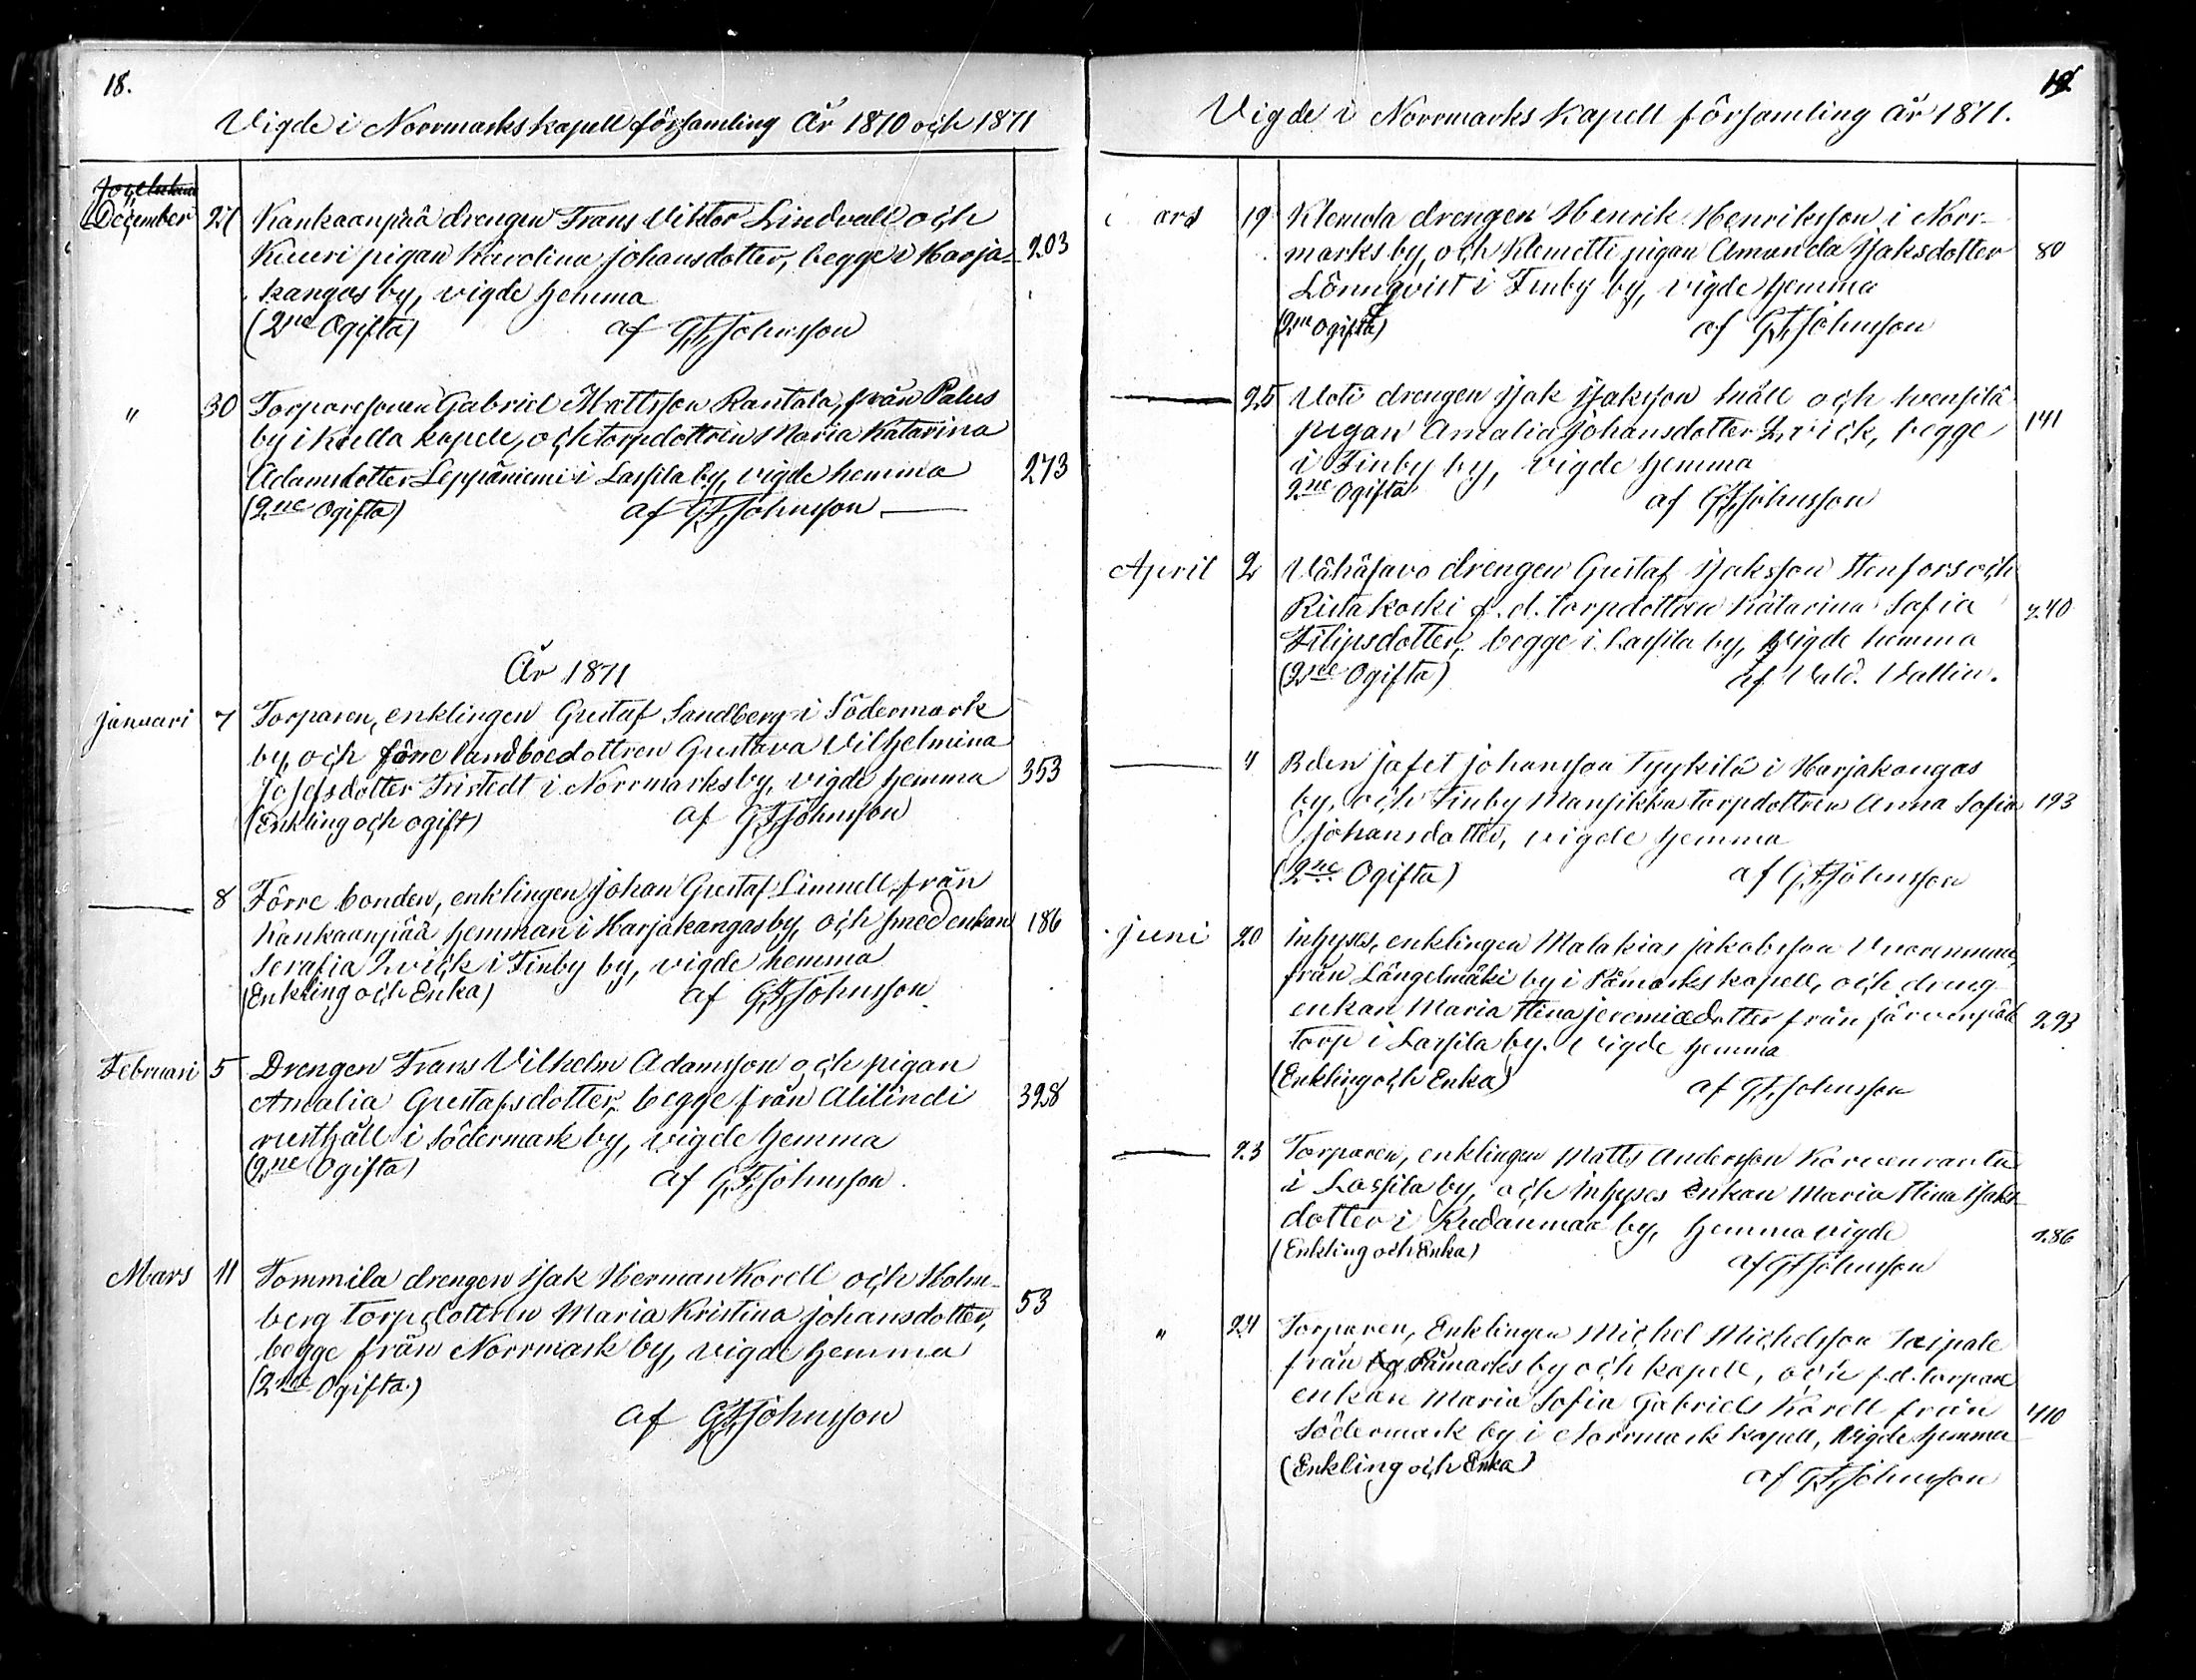 18.
Vigde i Norrmarks kapell församling År 1870 och 1871
December 27 Kankaanpää drengen Frans Viktor Lindvall och
Kuuri pigan Karolina Johansdotter, begge i Harja- 203
kangas by, vigde hemma
(2ne Ogifta) af G.F. Johnsson
" 30 Torparesonen Gabriel Mattsson Rantala, från Palus
by i Kulla kapell, och torpdottren Maria Katarina
Adamsdotter Leppäniemi i Lassila by, vigde hemma 273
(2ne Ogifta) af G.F. Johnsson
År 1871
Januari 7 Torparen, enklingen Gustaf Sandberg i Södermark
by, och förre landboedottren Gustava Vilhelmina
Josefsdotter Fristedt i Norrmarks by, vigde hemma 353
(Enkling och ogift) af G.F. Johnsson
8 Förre bonden, enklingen Johan Gustaf Linnell från
Kankaanpää hemman i Harjakangas by, och smedenkan 186
Serafia Qvick i Finby by, vigde hemma
(Enkling och Enka) af G.F. Johnsson
Februari 5 Drengen Frans Vilhelm Adamsson och pigan
Amalia Gustafsdotter, begge från Alilindi 398
rusthåll i Södermark by, vigde hemma
(2ne Ogifta) af G.F. Johnsson.
Mars 11 Tommila drengen Isak Herman Korell och Holm-
berg torpdottren Maria Kristina Johansdotter, 53
begge från Norrmark by, vigde hemma
(2ne Ogifta.)
af G.F. Johnsson
19
Vigde i Norrmarks Kapell församling år 1871.
ars 19 Klemola drengen Henrik Henriksson i Norr-
marks by, och Klemetti pigan Amanda Isaksdotter 80
Lönnqvist i Finby by, vigde hemma
(2ne Ogifta) af G.F. Johnsson
25 Uoti drengen Isak Isaksson Snäll och
pigan Amalia Johansdotter Qvick, begge 141
i Finby by, vigde hemma
2ne Ogifta af G.F. Johnsson
April 2 Vähäsavo drengen Gustaf Isaksson Stenfors och
Riutakoski f.d. torpdottren Katarina Sofia 240
Filipsdotter, begge i Lassila by, vigde hemma
(2ne Ogifta) af Vald. Vallin.
" Bden Jafet Johansson Tyykilä i Harjakangas
by, och Finby Mansikka torpdottren Anna Sofia 193
Johansdotter, vigde hemma
(2ne Ogifta) af G.F. Johnsson
Juni 20 Inhyses, enklingen Malakias Jakobsson
från Längelmäki by i Påmarks kapell, och dreng
enkan Maria Stina Jeremiædotter från Järvenpää 293
torp i Lassila by. Vigde hemma
(Enkling och Enka) af G.F. Johnsson
23 Torparen, enklingen Matts Andersson Korvenranta
i Lassila by, och inhyses enkan Maria Stina Isaks-
dotter i Rudanmaa by, hemma vigde 286
(Enkling och Enka) af G.F. Johnsson
" 24 Torparen, Enklingen Michel Michelsson Taipale
från Påmarks by och kapell, och f.d. torpare
enkan Maria Sofia Gabriels Korell från
Södermark by i Norrmark kapell, Vigde hemma 410
(Enkling och Enka) af G.F. Johnsson